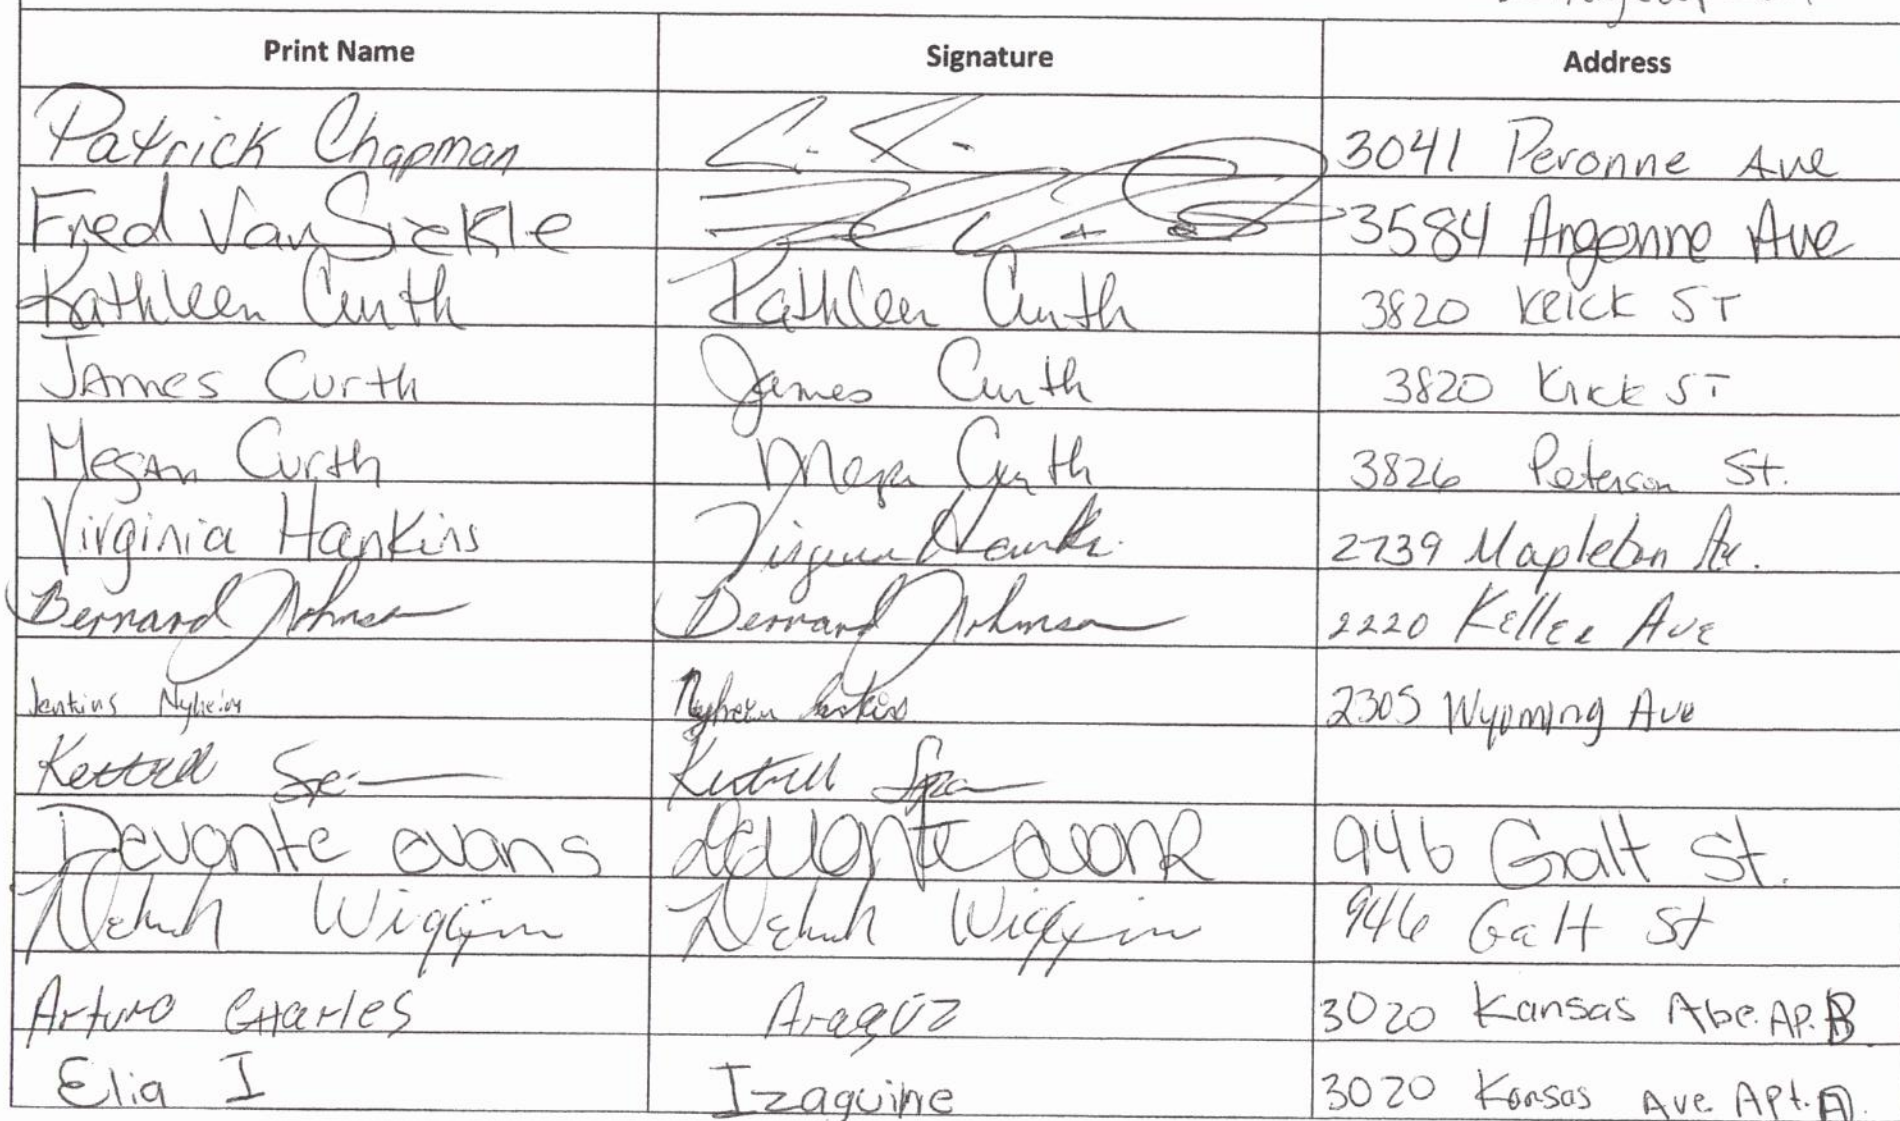 Print Name Signature Address
Patrick Chapman 3041 Peronne Ave
Fred VanSickle 3584 Argonne Ave
Kathleen Curth Kathleen Curth 3820 Krick ST
JAmes Curth James Curth 3820 Krick ST
Megan Curth Megan Curth 3826 Peterson St.
Virginia Hankins Virginia 2739 Mapleton Av.
Bernard Johnson Bernard Johnson 2220 Keller Ave
Jenkins Nyheim Nyheim Jenkins 2305 Wyoming Ave
Devonte evans Devonte 946 Galt St.
Wiggin Wiggin 946 Galt St
Arturo CHarles Aragüz 3020 Kansas Abe. AP. B
Elia I Izaguirre 3020 Kansas Ave Apt. A